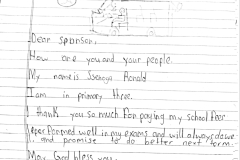 Dear sponsor,
How are you and your people.
My name is Ssenoga Ronald
I am in primary three.
I thank you so much for paying my school fees
well in my exams and will always
and promise to do better next term.
May God bless you